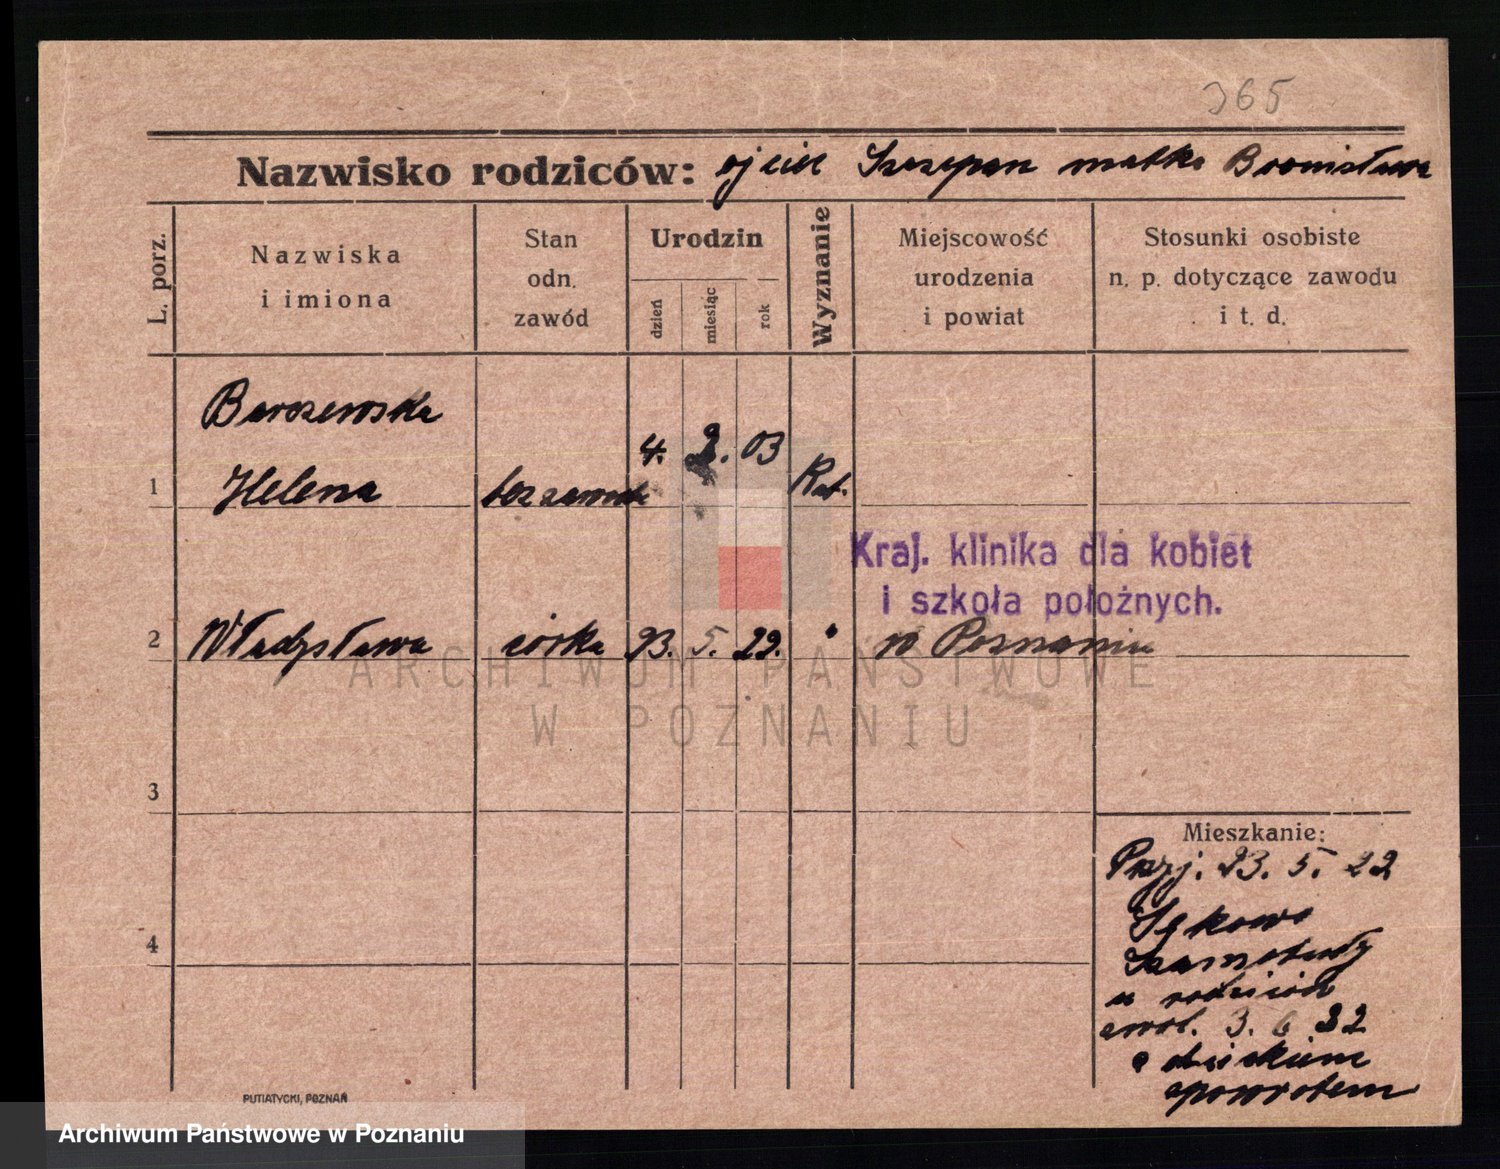 365
Nazwisko rodziców: ojciec Szczepan matka Bronisława
L. porz.
Nazwiska
i imiona
Stan
odn.
zawód
Urodzin
dzień
miesiąc
rok
Wyznanie
Miejscowość
urodzenia
i powiat
Stosunki osobiste
n. p. dotyczące zawodu
i t. d.
Barczewska
1 Helena bez zawodu 4. 2. 03 Kat.
Kraj. klinika dla kobiet
i szkoła położnych.
2 Władysława córka 23. 5. 22. " w Poznaniu
ARCHIWUM PAŃSTWOWE
W POZNANIU
3
Mieszkanie:
Przyj. 23. 5. 22
Sękowo
Szamotuły
u rodziców
zwol. 3. 6 22
z dzieckiem
zpowrotem
4
PUTIATYCKI, POZNAŃ
Archiwum Państwowe w Poznaniu